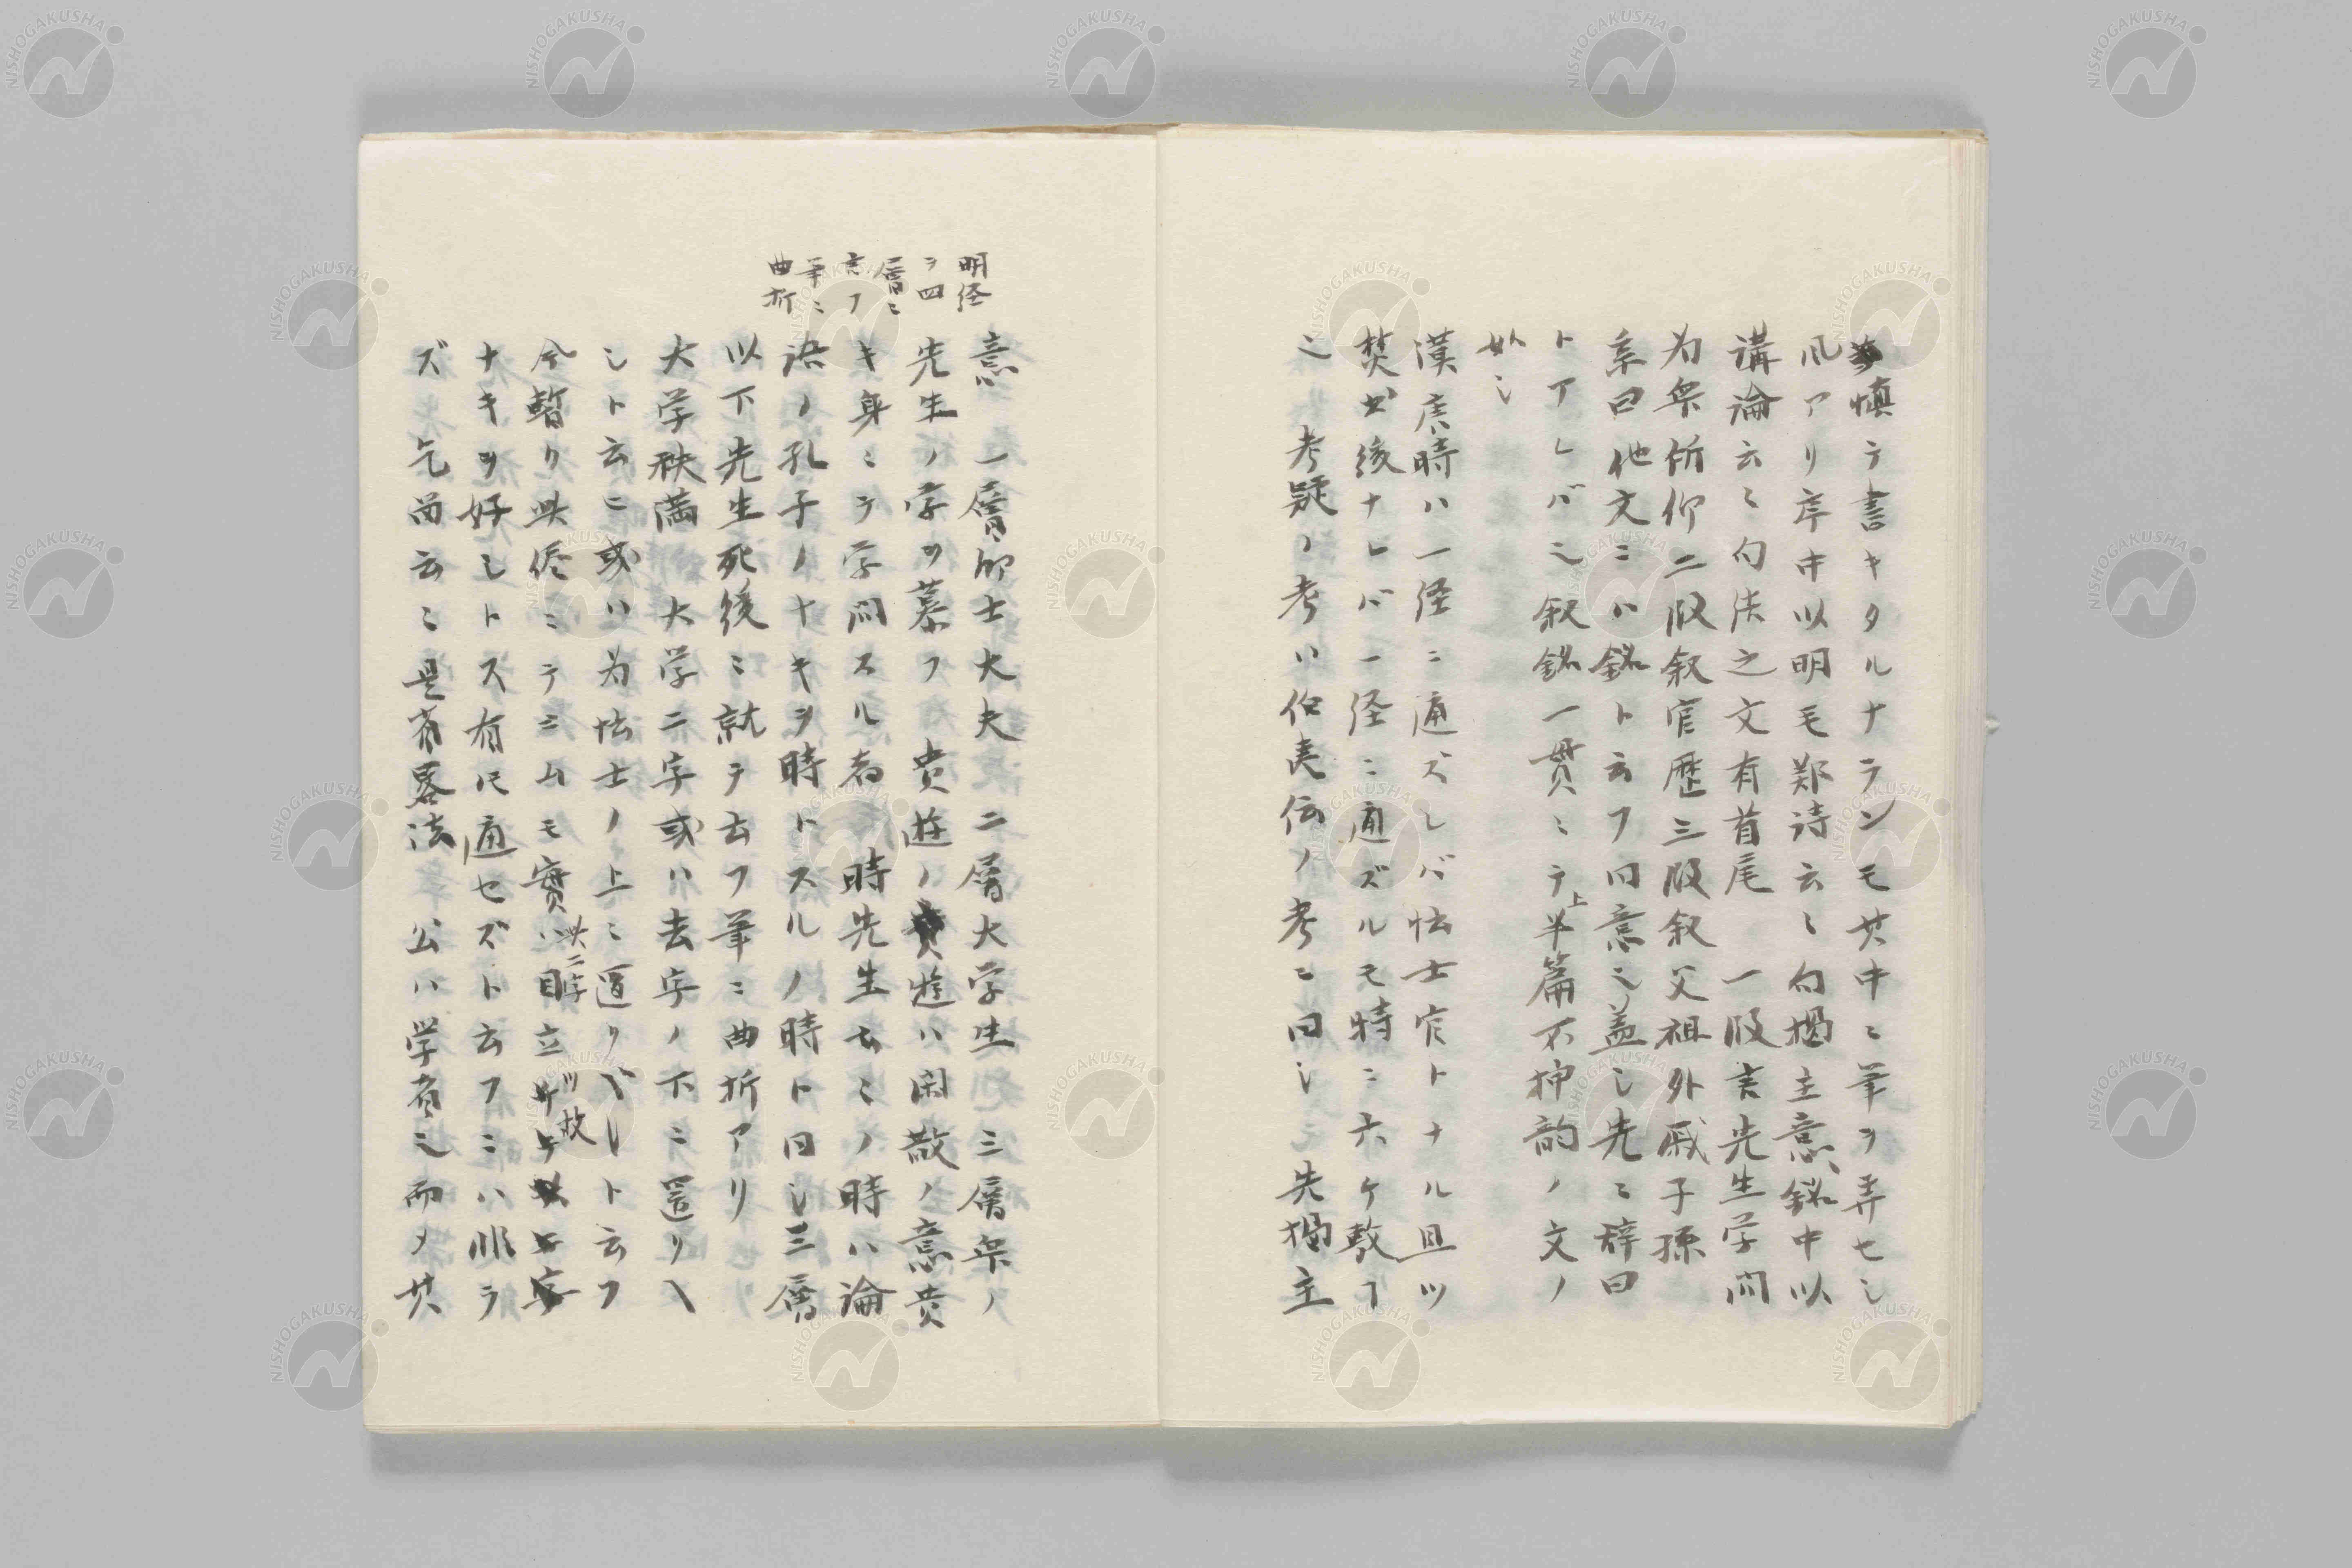 慎テ書キタルナランモ其中ニ筆ヲ弄セシ
風アリ序中以明毛鄭詩云〻句掲主意銘中以
講論云〻句法之文有首尾　一段言先生学問
為衆所仰二段叙官歴三段叙父祖外戚子孫
系曰他文ニハ銘ト云フ同意ミ蓋シ先ミ辞曰
トアレバミ叙銘一貫ミテ上半篇不押韵ノ文ノ
如シ
漢唐時ハ一経ニ通ズレバ怯士官トナル且ツ
焚書後ナレバ一経ニ通ズルモ特ニ六ケ敷ヿ
ミ　考疑ノ考ハ伯夷伝ノ考ニ同シ　先掲主
明経
ヲ四
層ニ
言フ
筆ニ
曲折
意　一層郷士大夫　二層大学生　三層衆ノ
先生ノ学ヲ慕フ　貴遊ノ貴遊ハ閑散ノ意貴
キ身ニテ学問スル者　時先生云〻ノ時ハ論
語ノ孔子ノナキヲ時トスルノ時ト同シ三層
以下先生死後ニ就テ云フ筆ニ曲折アリ
大学秩満　大学二字或ハ去字ノ下ニ置リベ
シト云ヒ或ハ為怯士ノ上ニ置リベシト云フ
今暫リ此侭ニテヨムモ實ハ此二字目立ツ故
ナキヲ好シトス有尺通セズト云フニハ非ラ
ズ　乞留云〻是省畧法　公ハ学者ミ而メ其